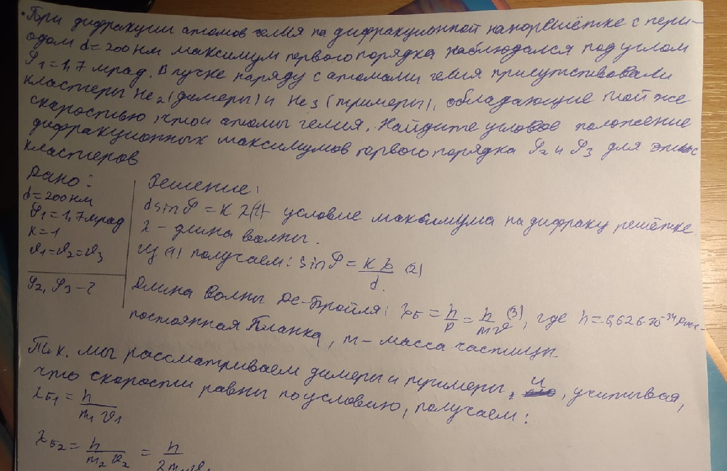 • При дифракции атомов гелия на дифракционной нанорешётке с пери-
одом d = 200 нм максимум первого порядка наблюдался под углом
φ₁ = 1,7 мрад. В пучке наряду с атомами гелия присутствовали
кластеры He₂ (димеры) и He₃ (тримеры), обладающие той же
скоростью, что и атомы гелия. Найдите угловое положение
дифракционных максимумов первого порядка φ₂ и φ₃ для этих
кластеров
Дано:
d = 200 нм
φ₁ = 1,7 мрад
k = 1
v₁ = v₂ = v₃
φ₂, φ₃ - ?
Решение:
d sin φ = k λ (1) условие максимума на дифракц решётке
λ - длина волны.
Из (1) получаем: sin φ = k λ / d (2)
Длина волны Де-Бройля: λ_Б = h/p = h/mv (3), где h = 6,626·10⁻³⁴ Дж·с -
постоянная Планка, m - масса частицы.
Т.к. мы рассматриваем димеры и тримеры, и, учитывая,
что скорости равны по условию, получаем:
λ_Б₁ = h / m₁ v₁
λ_Б₂ = h / m₂ v₂ = h